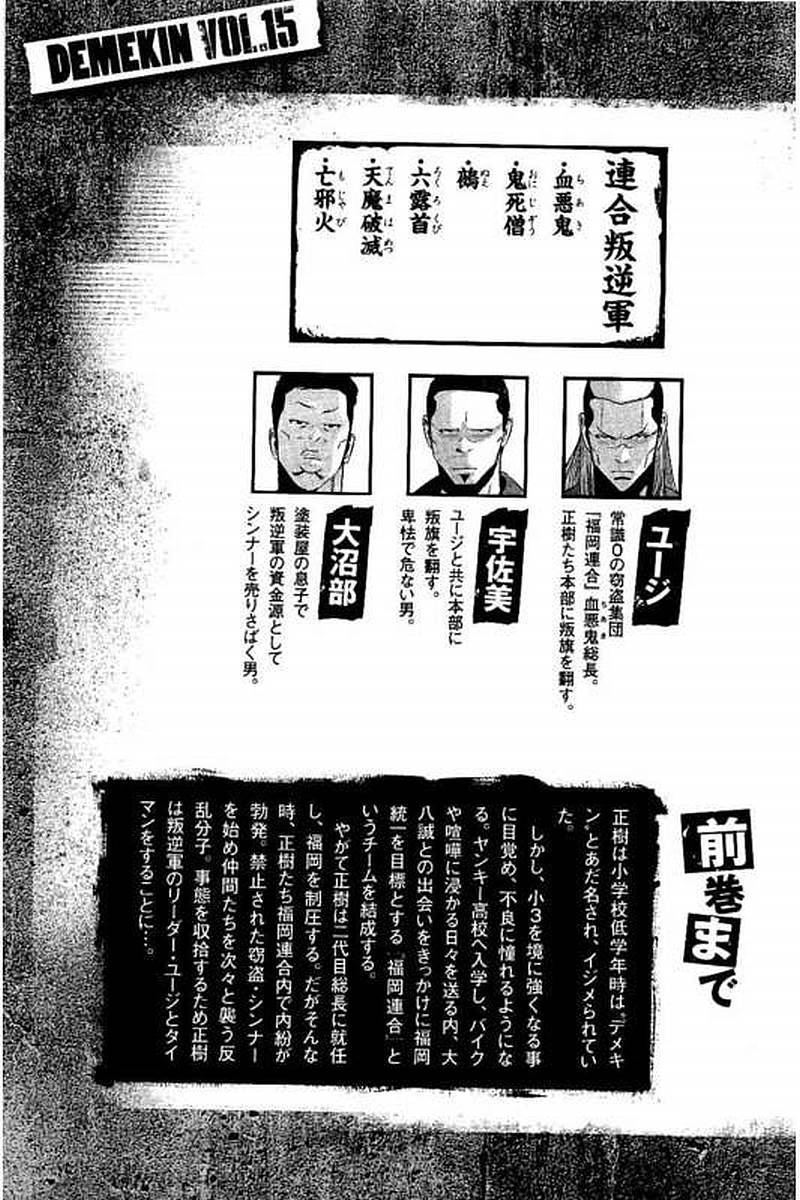 DEMEKIN VOL.15
連合叛逆軍
・血悪鬼
・鬼死僧
・鵺
・六露首
・天魔破滅
・亡邪火
ユージ
常識0の窃盗集団
『福岡連合』血悪鬼総長。
正樹たち本部に叛旗を翻す。
宇佐美
ユージと共に本部に
叛旗を翻す。
卑怯で危ない男。
大沼部
塗装屋の息子で
叛逆軍の資金源として
シンナーを売りさばく男。
前巻まで
正樹は小学校低学年時は〝デメキ
ン〟とあだ名され、イジメられてい
た。
しかし、小3を境に強くなる事
に目覚め、不良に憧れるようにな
る。ヤンキー高校へ入学し、バイク
や喧嘩に浸かる日々を送る内、大
八誠との出会いをきっかけに福岡
統一を目標とする『福岡連合』と
いうチームを結成する。
やがて正樹は二代目総長に就任
し、福岡を制圧する。だがそんな
時、正樹たち福岡連合内で内紛が
勃発。禁止された窃盗・シンナー
を始め仲間たちを次々と襲う反
乱分子。事態を収拾するため正樹
は叛逆軍のリーダー・ユージとタイ
マンをすることに…。